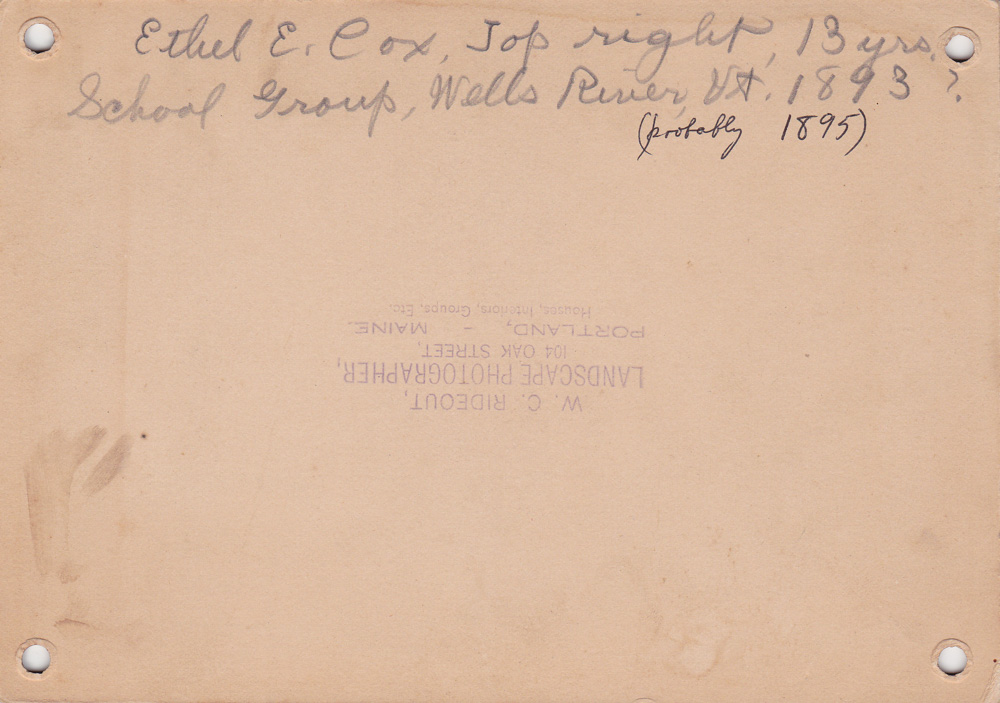 Ethel E. Cox, Top right, 13 yrs.
School Group, Wells River, Vt. 1893 ?.
(probably 1895)
W. C. RIDEOUT,
LANDSCAPE PHOTOGRAPHER,
104 OAK STREET,
PORTLAND, - MAINE.
Houses, Interiors, Groups, Etc.